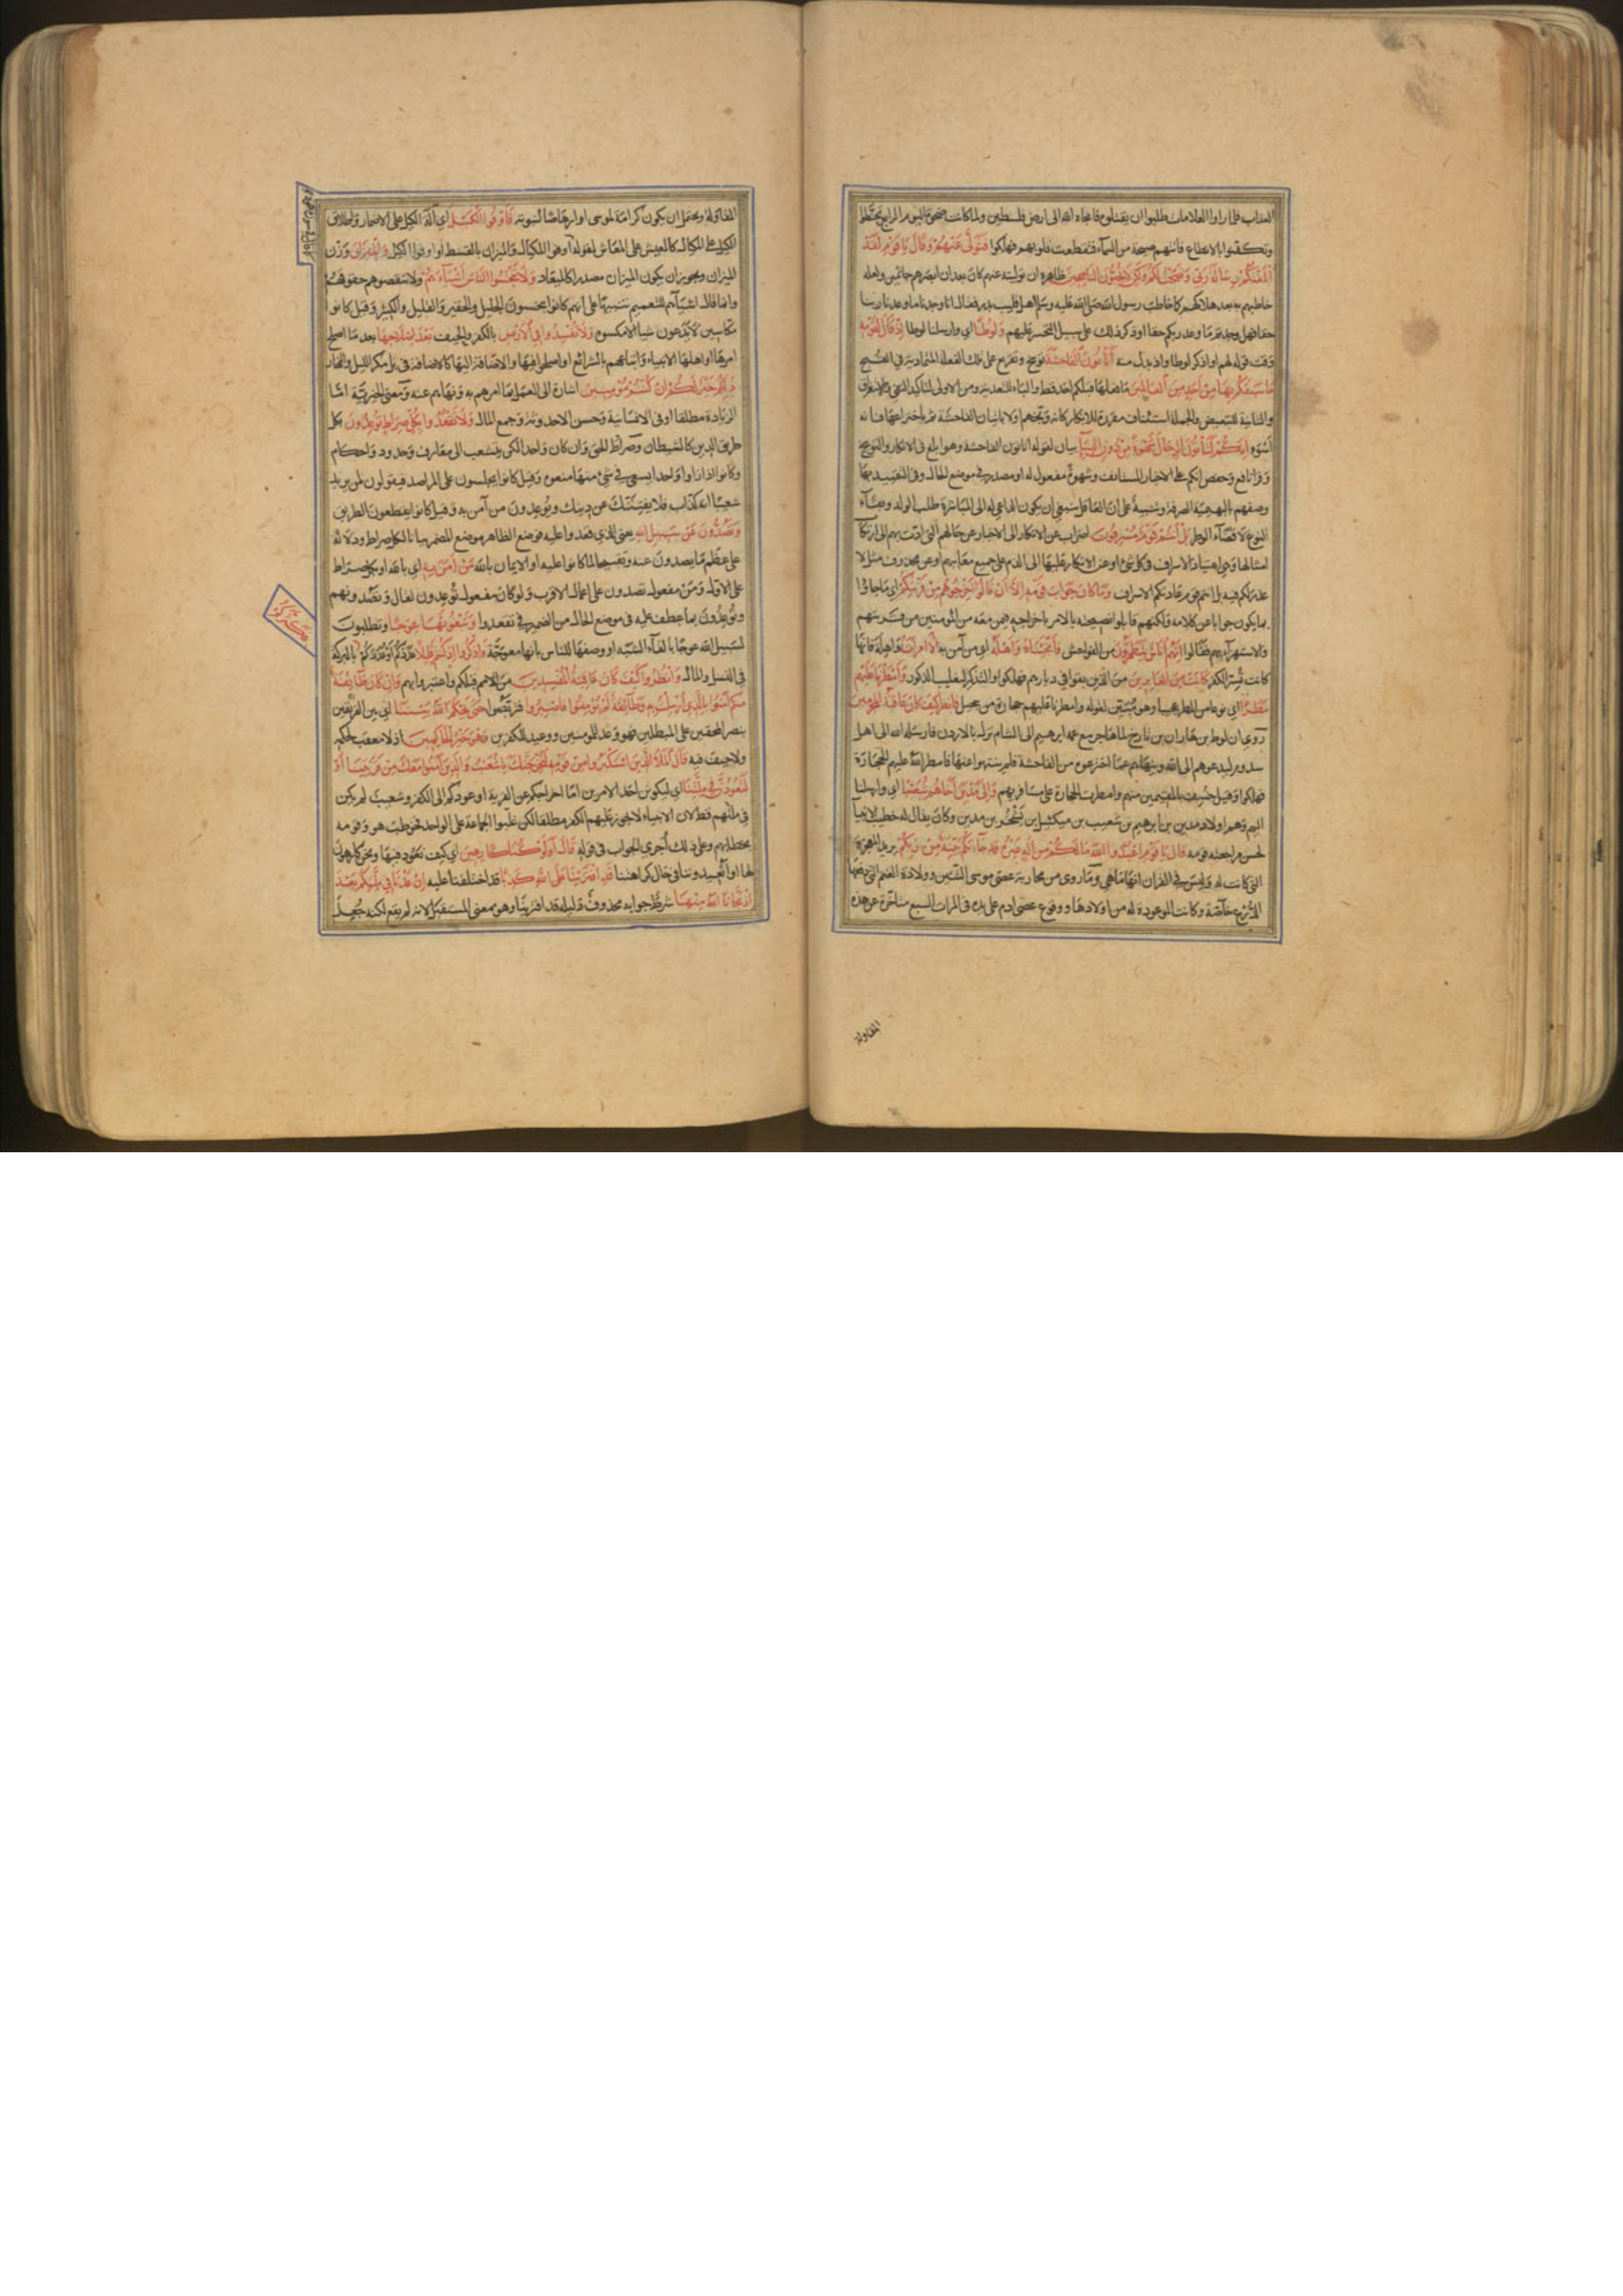 العذاب فلما راوا العلامات طلبوا ان يقتلوه فانجاه الله الى ارض فلسطين ولما كانت ضحوة اليوم الرابع تحنطوا
وتكفنوا بالانطاع فاتتهم صيحة من السماء فتقطعت قلوبهم فهلكوا فَتَوَلَّى عَنْهُمْ وَقَالَ يَا قَوْمِ لَقَدْ
اَبْلَغْتُكُمْ رِسَالَةَ رَبِّي وَنَصَحْتُ لَكُمْ وَلَكِنْ لَا تُحِبُّونَ النَّاصِحِينَ ظاهره ان توليته عنهم كان بعد ان ابصرهم جاثمين ولعله
خاطبهم به بعد هلاكهم كما خاطب رسول الله صلى الله عليه وسلم اهل قليب بدر فقال انا وجدنا ما وعدنا ربنا
حقا فهل وجدتم ما وعد ربكم حقا او ذكر ذلك على سبيل التحسر عليهم وَلُوطًا اي وارسلنا لوطا اِذْ قَالَ لِقَوْمِهِ
وقت قوله لهم او اذكر لوطا واذ بدل منه اَتَأْتُونَ الْفَاحِشَةَ توبيخ وتقريع على تلك الفعلة المتمادية في القبح
مَا سَبَقَكُمْ بِهَا مِنْ اَحَدٍ مِنَ الْعَالَمِينَ ما فعلها قبلكم احد قط والباء للتعدية ومن الاولى لتاكيد النفي والاستغراق
والثانية للتبعيض والجملة استئناف مقررة للانكار كانه وبخهم اولا باتيان الفاحشة ثم باختراعها فانه
اسوء اِنَّكُمْ لَتَأْتُونَ الرِّجَالَ شَهْوَةً مِنْ دُونِ النِّسَاءِ بيان لقوله اتاتون الفاحشة وهو ابلغ في الانكار والتوبيخ
وقرا نافع وحفص انكم على الاخبار المستانف وشهوة مفعول له او مصدر في موضع الحال وفي التقييد بها
وصفهم بالبهيمية الصرفة وتنبيه على ان العاقل ينبغي ان يكون الداعي له الى المباشرة طلب الولد وبقاء
النوع لا قضاء الوطر بَلْ اَنْتُمْ قَوْمٌ مُسْرِفُونَ اضراب عن الانكار الى الاخبار عن حالهم التي ادت بهم الى ارتكاب
امثالها وهي اعتياد الاسراف في كل شيء او عن الانكار عليها الى الذم على جميع معايبهم او عن محذوف مثل لا
عذر لكم فيه بل انتم قوم عادتكم الاسراف وَمَا كَانَ جَوَابَ قَوْمِهِ اِلَّا اَنْ قَالُوا اَخْرِجُوهُمْ مِنْ قَرْيَتِكُمْ اي ما جاؤا
بما يكون جوابا عن كلامه ولكنهم قابلوا نصيحته بالامر باخراجه فيمن معه من المؤمنين من قريتهم
والاستهزاء بهم فقالوا اِنَّهُمْ اُنَاسٌ يَتَطَهَّرُونَ من الفواحش فَاَنْجَيْنَاهُ وَاَهْلَهُ اي من آمن به اِلَّا امْرَاَتَهُ واهلة فانها
كانت تسر الكفر كَانَتْ مِنَ الْغَابِرِينَ من الذين بقوا في ديارهم فهلكوا والتذكير لتغليب الذكور وَاَمْطَرْنَا عَلَيْهِمْ
مَطَرًا اي نوعا من المطر عجيبا وهو مبين لقوله وامطرنا عليهم حجارة من سجيل فَانْظُرْ كَيْفَ كَانَ عَاقِبَةُ الْمُجْرِمِينَ
روي ان لوط بن هاران بن تارخ لما هاجر مع عمه ابرهيم الى الشام نزل بالاردن فارسله الله الى اهل
سدوم ليدعوهم الى الله وينهاهم عما اخترعوه من الفاحشة فلم ينتهوا عنها فامطر الله عليهم الحجارة
فهلكوا وقيل خسف بالمقيمين منهم وامطرت الحجارة على مسافريهم وَاِلَى مَدْيَنَ اَخَاهُمْ شُعَيْبًا اي وارسلنا
اليهم وهم اولاد مدين بن ابرهيم بن شعيب بن ميكئيل بن يشجر بن مدين وكان يقال له خطيب الانبياء
لحسن مراجعته قومه قَالَ يَا قَوْمِ اعْبُدُوا اللهَ مَا لَكُمْ مِنْ اِلَهٍ غَيْرُهُ قَدْ جَاءَتْكُمْ بَيِّنَةٌ مِنْ رَبِّكُمْ يريد المعجزة
التي كانت له وليس في القران انها ما هي وما روي من محاربة عصى موسى التنين وولادة الغنم التي دفعها
الدرع خاصة وكانت الموعودة له من اولادها ووقوع عصى ادم على يده في المرات السبع متاخرة عن هذه
المقاولة
المقاولة ويحتمل ان يكون كرامة لموسى او ارهاصا لنبوته فَاَوْفُوا الْكَيْلَ اي آلة الكيل على الاضمار واطلاق
الكيل على المكيال كالعيش على المعاش لقوله اوفوا المكيال والميزان بالقسط او اوفوا الكيل وَالْمِيزَانَ وزن
الميزان ويجوز ان يكون الميزان مصدرا كالميعاد وَلَا تَبْخَسُوا النَّاسَ اَشْيَاءَهُمْ ولا تنقصوهم حقوقهم
وانما قال اشياءهم للتعميم تنبيها على انهم كانوا يبخسون الجليل والحقير والقليل والكثير وقيل كانوا
مكاسين لا يدعون شيا الا مكسوه وَلَا تُفْسِدُوا فِي الْاَرْضِ بالكفر والحيف بَعْدَ اِصْلَاحِهَا بعد ما اصلح
امرها او اهلها الانبياء واتباعهم بالشرائع او اصلحوا فيها والاضافة اليها كالاضافة في بل مكر الليل والنهار
ذَلِكُمْ خَيْرٌ لَكُمْ اِنْ كُنْتُمْ مُؤْمِنِينَ اشارة الى العمل بما امرهم به ونهاهم عنه ومعنى الخيرية اما
الزيادة مطلقا او في الانسانية وحسن الاحدوثة وجمع المال وَلَا تَقْعُدُوا بِكُلِّ صِرَاطٍ تُوعِدُونَ بكل
طريق الدين كالشيطان وصراط الحق وان كان واحدا لكن يتشعب الى معارف وحدود واحكام
وكانوا اذا راوا واحدا يسعى في شيء منها منعوه وقيل كانوا يجلسون على المراصد فيقولون لمن يريد
شعيبا انه كذاب فلا يفتننك عن دينك ويوعدون من آمن به وقيل كانوا يقطعون الطريق
وَتَصُدُّونَ عَنْ سَبِيلِ اللهِ يعني الذي قعدوا عليه فوضع الظاهر موضع المضمر بيانا لكل صراط ودلالة
على عظم ما يصدون عنه وتقبيحا لما كانوا عليه او الايمان بالله مَنْ اٰمَنَ بِهِ اي بالله او بكل صراط
على الاول ومن مفعول تصدون على اعمال الاقرب ولو كان مفعول توعدون لقال وتصدونهم
وتوعدون بما عطف عليه في موضع الحال من الضمير في تقعدوا وَتَبْغُونَهَا عِوَجًا وتطلبون
لسبيل الله عوجا بالقاء الشبه او وصفها للناس بانها معوجة وَاذْكُرُوا اِذْ كُنْتُمْ قَلِيلًا عددكم او عددكم فَكَثَّرَكُمْ بالبركة
في النسل والمال وَانْظُرُوا كَيْفَ كَانَ عَاقِبَةُ الْمُفْسِدِينَ من الامم قبلكم واعتبروا بهم وَاِنْ كَانَ طَائِفَةٌ
مِنْكُمْ اٰمَنُوا بِالَّذِي اُرْسِلْتُ بِهِ وَطَائِفَةٌ لَمْ يُؤْمِنُوا فَاصْبِرُوا فتربصوا حَتَّى يَحْكُمَ اللهُ بَيْنَنَا اي بين الفريقين
بنصر المحقين على المبطلين فهو وعد للمومنين ووعيد للكفرين وَهُوَ خَيْرُ الْحَاكِمِينَ اذ لا معقب لحكمه
ولا حيف فيه قَالَ الْمَلَاُ الَّذِينَ اسْتَكْبَرُوا مِنْ قَوْمِهِ لَنُخْرِجَنَّكَ يَا شُعَيْبُ وَالَّذِينَ اٰمَنُوا مَعَكَ مِنْ قَرْيَتِنَا اَوْ
لَتَعُودُنَّ فِي مِلَّتِنَا اي ليكونن احد الامرين اما اخراجكم عن القرية او عودكم الى الكفر وشعيب لم يكن
في ملتهم قط لان الانبياء لا يجوز عليهم الكفر مطلقا لكن غلبوا الجماعة على الواحد فخوطب هو وقومه
بخطابهم وعلى ذلك اجرى الجواب في قوله قَالَ اَوَلَوْ كُنَّا كَارِهِينَ اي كيف نعود فيها ونحن كارهون
لها او اتعيدوننا في حال كراهتنا قَدِ افْتَرَيْنَا عَلَى اللهِ كَذِبًا قد اختلقنا عليه اِنْ عُدْنَا فِي مِلَّتِكُمْ بَعْدَ
اِذْ نَجَّانَا اللهُ مِنْهَا شرط جوابه محذوف دليله قد افترينا وهو بمعنى المستقبل لانه لم يقع لكنه جعل